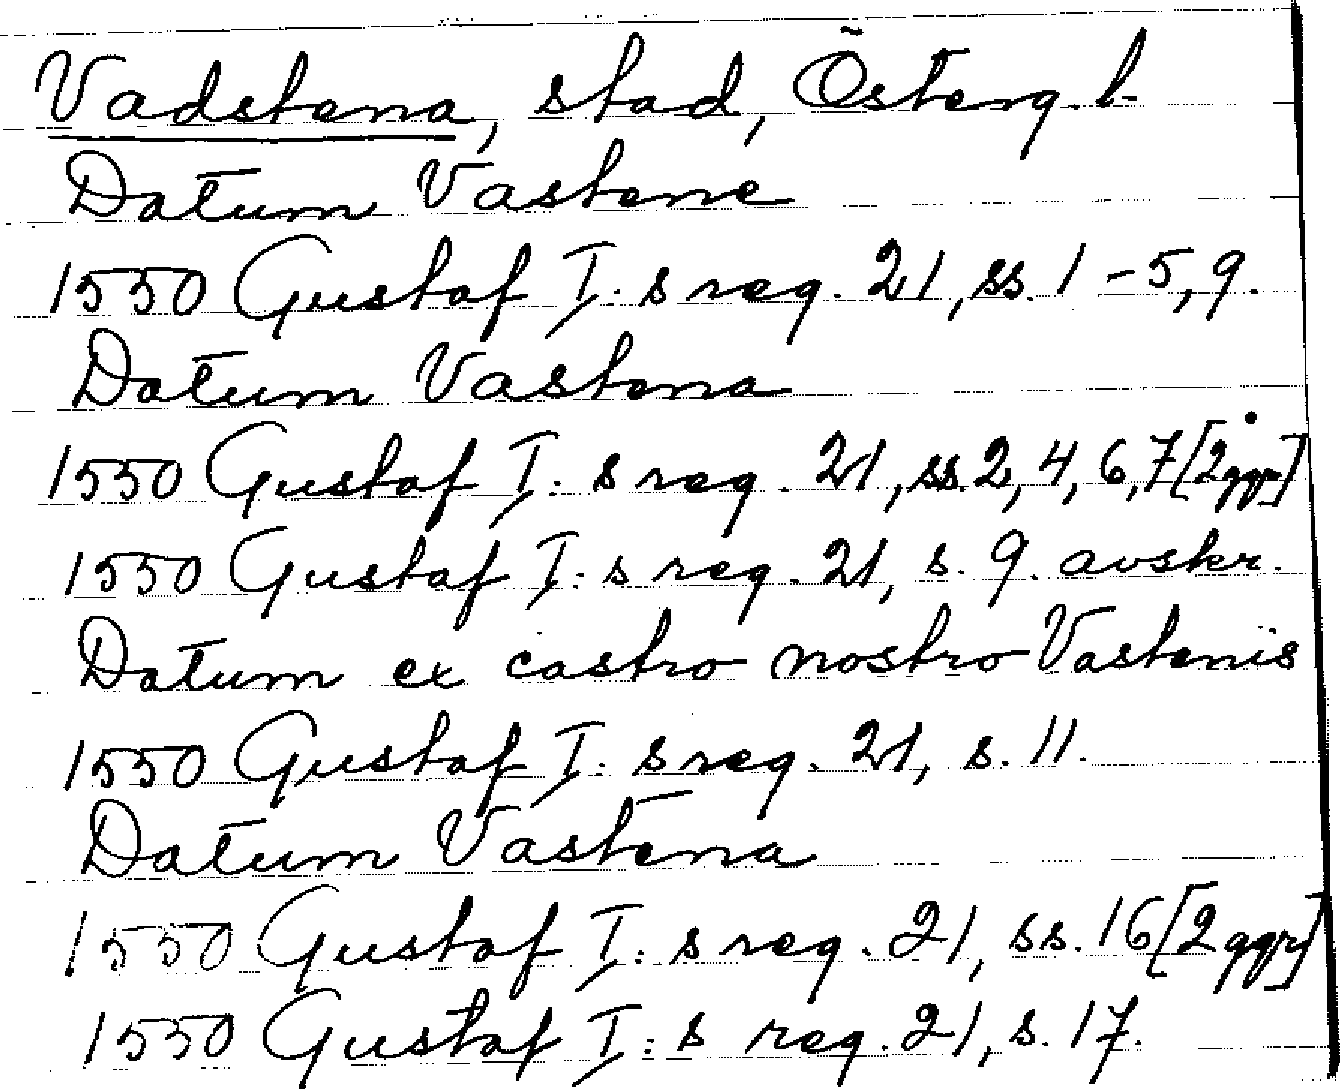 Vadstena, stad, Österg. l.
Datum Vastene
1550 Gustaf I:s reg. 21, ss. 1-5, 9.
Datum Vastena
1550 Gustaf I:s reg. 21, ss. 2, 4, 6, 7 [2 ggr]
1550 Gustaf I:s reg. 21, s. 9. avskr.
Datum ex castro nostro Vastenis
1550 Gustaf I:s reg. 21, s. 11.
Datum Vastena
1550 Gustaf I:s reg. 21, ss. 16 [2 ggr]
1550 Gustaf I:s reg. 21, s. 17.